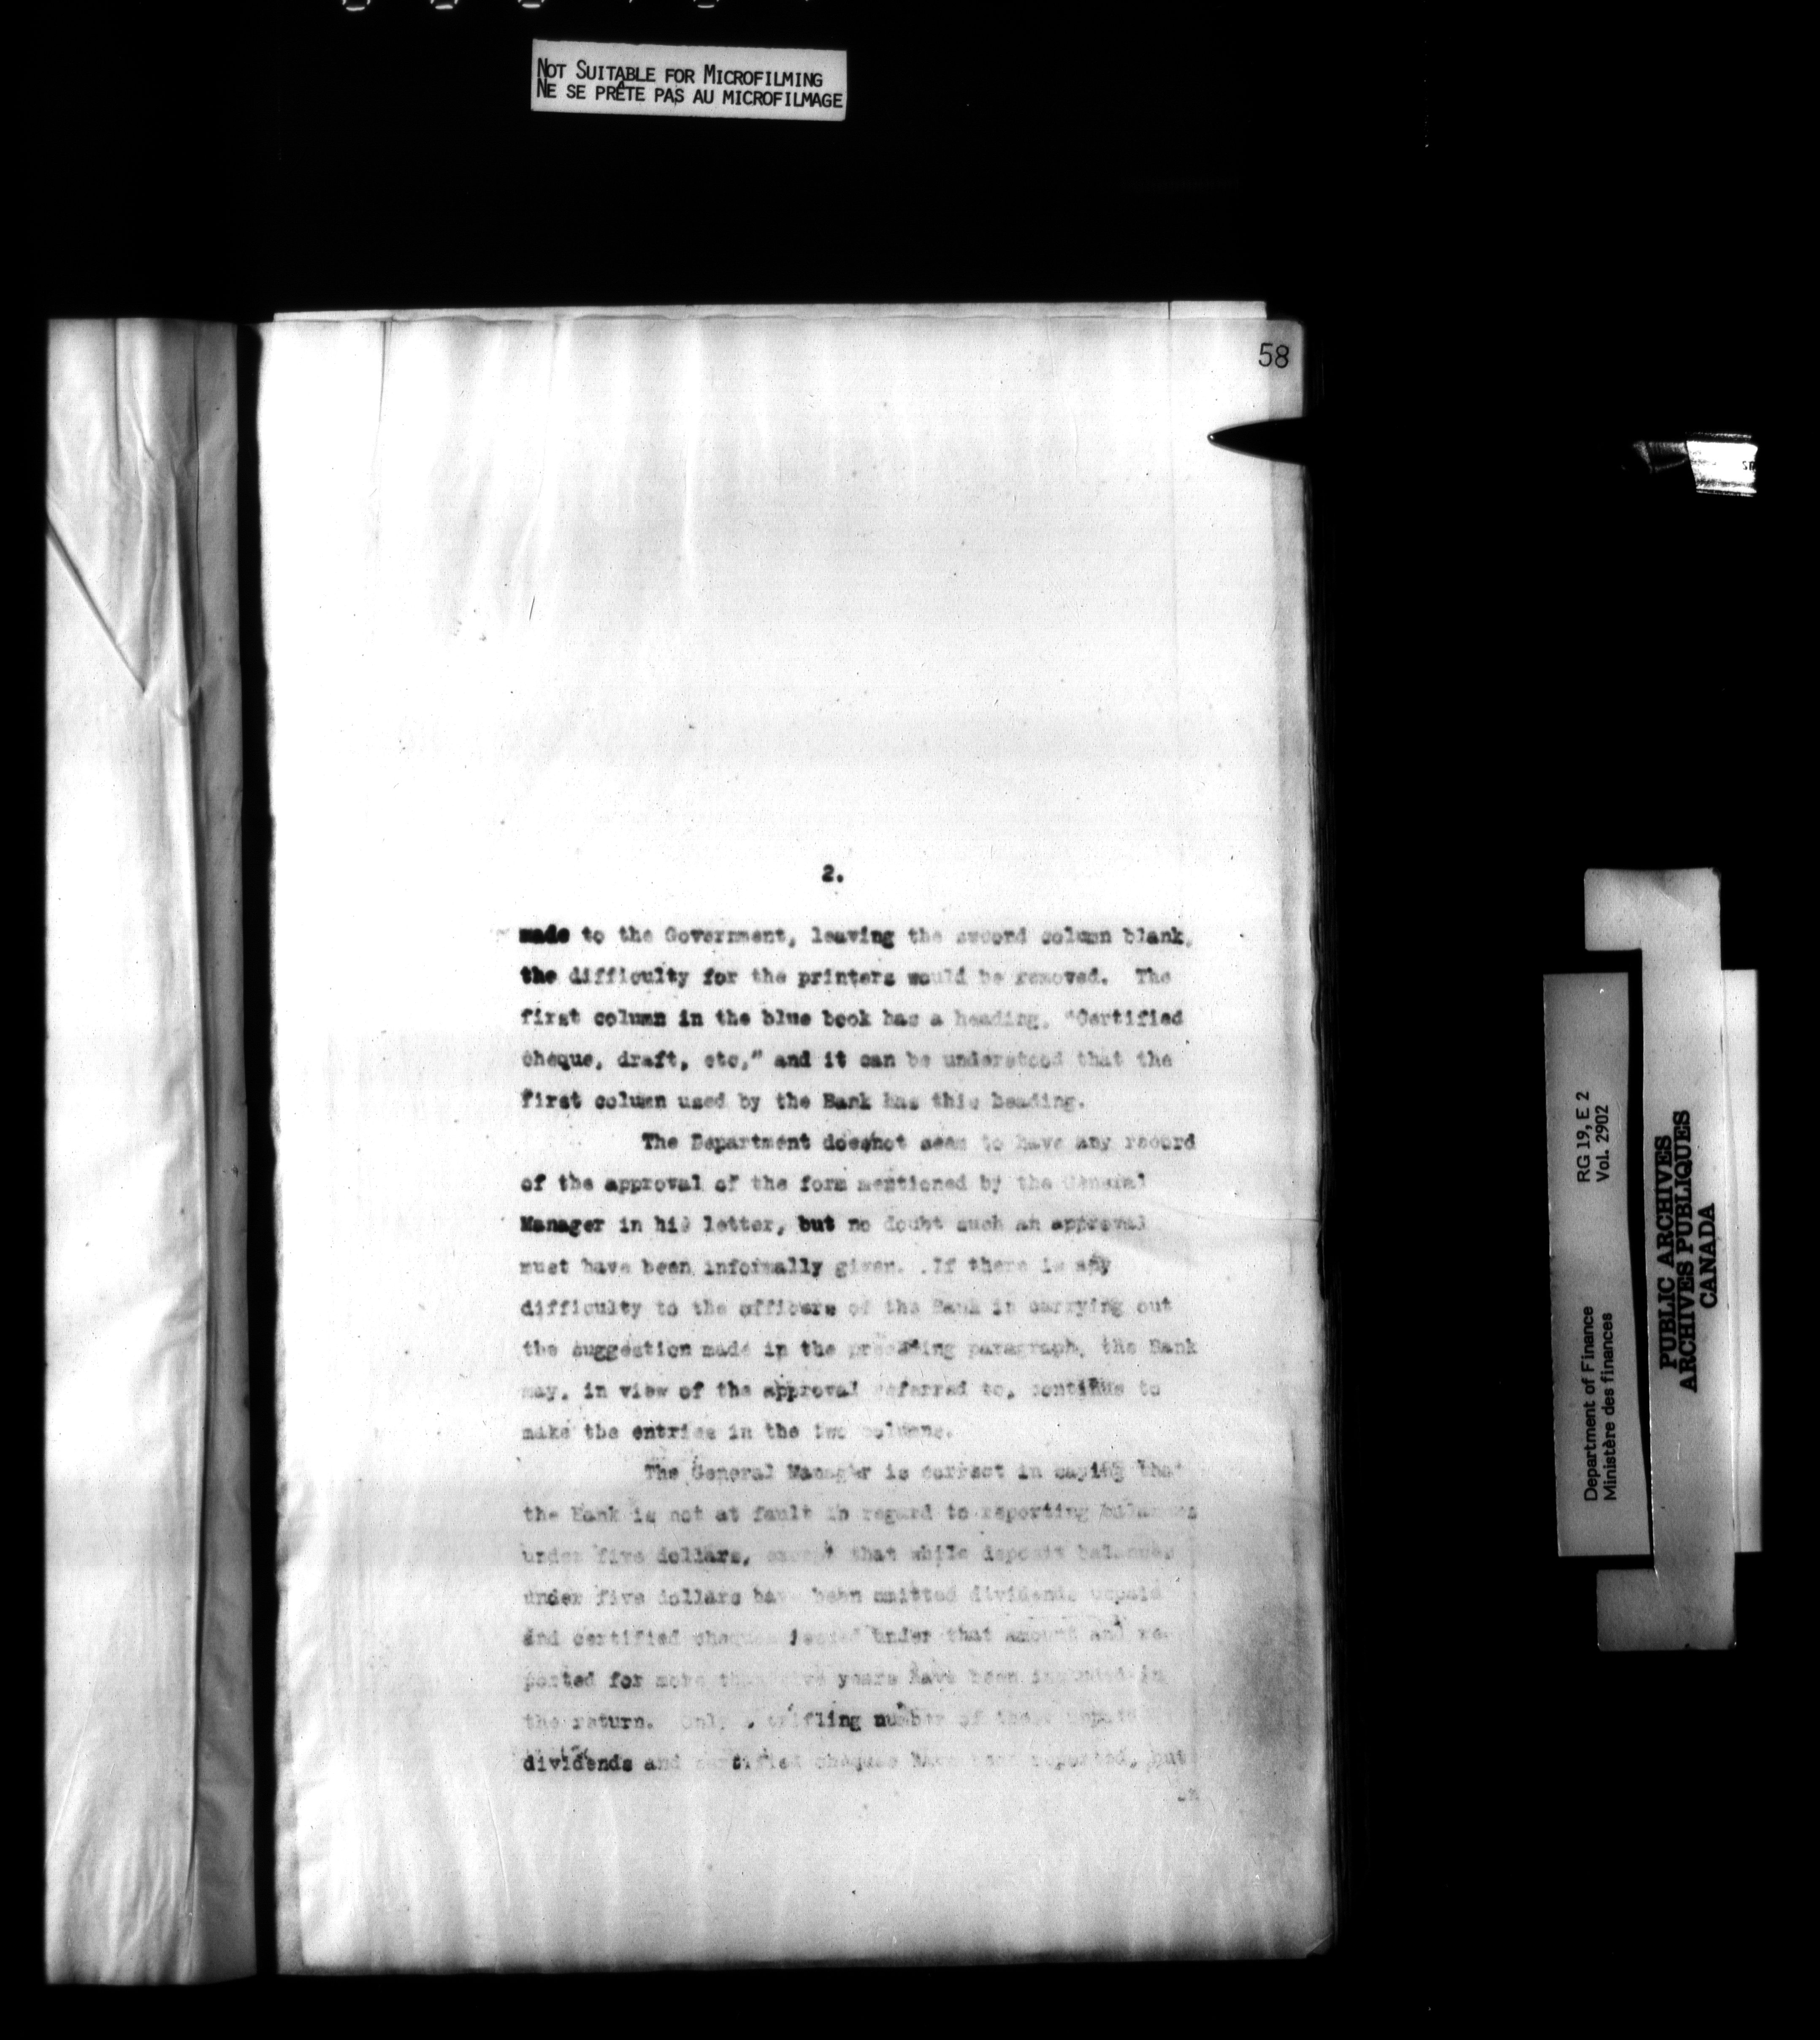 NOT SUITABLE FOR MICROFILMING
NE SE PRÊTE PAS AU MICROFILMAGE
58
2.
made to the Government, leaving the second column blank,
the difficulty for the printers would be removed. The
first column in the blue book has a heading, "Certified
cheque, draft, etc," and it can be understood that the
first column used by the Bank has this heading.
The Department doesnot seem to have any record
of the approval of the form mentioned by the General
Manager in his letter, but no doubt such an approval
must have been informally given. If there is any
difficulty to the officers of the Bank in carrying out
the suggestion made in the preceding paragraph, the Bank
may, in view of the approval referred to, continue to
make the entries in the two columns.
The General Manager is correct in saying that
the Bank is not at fault in regard to reporting balances
under five dollars, except that while deposit balances
under five dollars have been omitted dividends unpaid
and certified cheques issued under that amount and re-
ported for more than five years have been included in
the return. Only a trifling number of these unpaid
dividends and certified cheques have been reported, but
Department of Finance RG 19, E 2
Ministère des finances Vol. 2902
PUBLIC ARCHIVES
ARCHIVES PUBLIQUES
CANADA